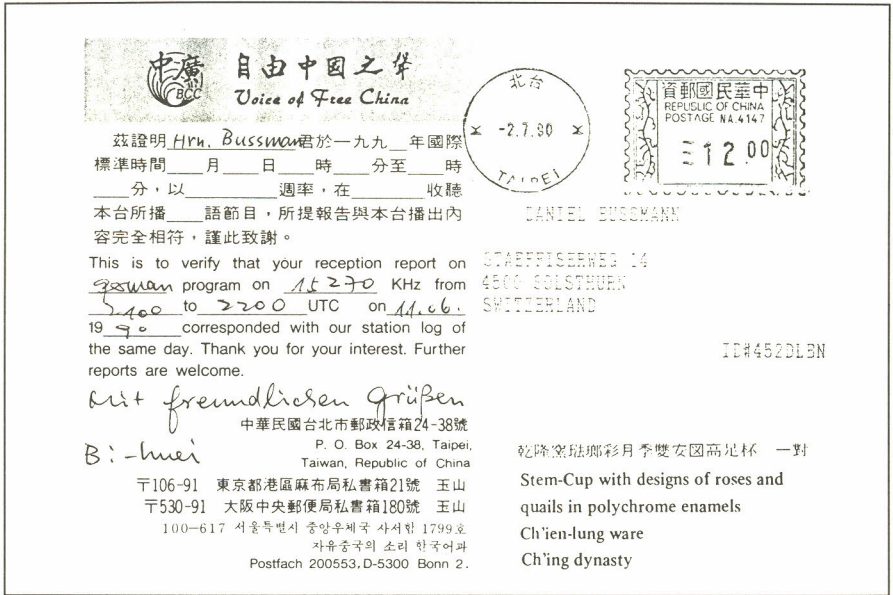 中廣
BCC
自由中国之聲
Voice of Free China
茲證明 Hrn. Bussman 君於一九九__年國際
標準時間____月____日____時____分至____時
____分，以__________週率，在________收聽
本台所播____語節目，所提報告與本台播出內
容完全相符，謹此致謝。
This is to verify that your reception report on
german program on 15270 KHz from
2100 to 2200 UTC on 11.06.
1990 corresponded with our station log of
the same day. Thank you for your interest. Further
reports are welcome.
Mit freundlichen Grüßen
Bi-huei
中華民國台北市郵政信箱24-38號
P. O. Box 24-38, Taipei,
Taiwan, Republic of China
〒106-91 東京都港區麻布局私書箱21號 玉山
〒530-91 大阪中央郵便局私書箱180號 玉山
100-617 서울특별시 중앙우체국 사서함 1799호
자유중국의 소리 한국어과
Postfach 200553, D-5300 Bonn 2.
北台
-2.7.90
TAIPEI
資郵國民華中
REPUBLIC OF CHINA
POSTAGE NA.4147
12.00
DANIEL BUSSMANN
STAEFFISERWEG 14
4500 SOLOTHURN
SWITZERLAND
ID#452DLBN
乾隆窯琺瑯彩月季雙安図高足杯 一對
Stem-Cup with designs of roses and
quails in polychrome enamels
Ch'ien-lung ware
Ch'ing dynasty